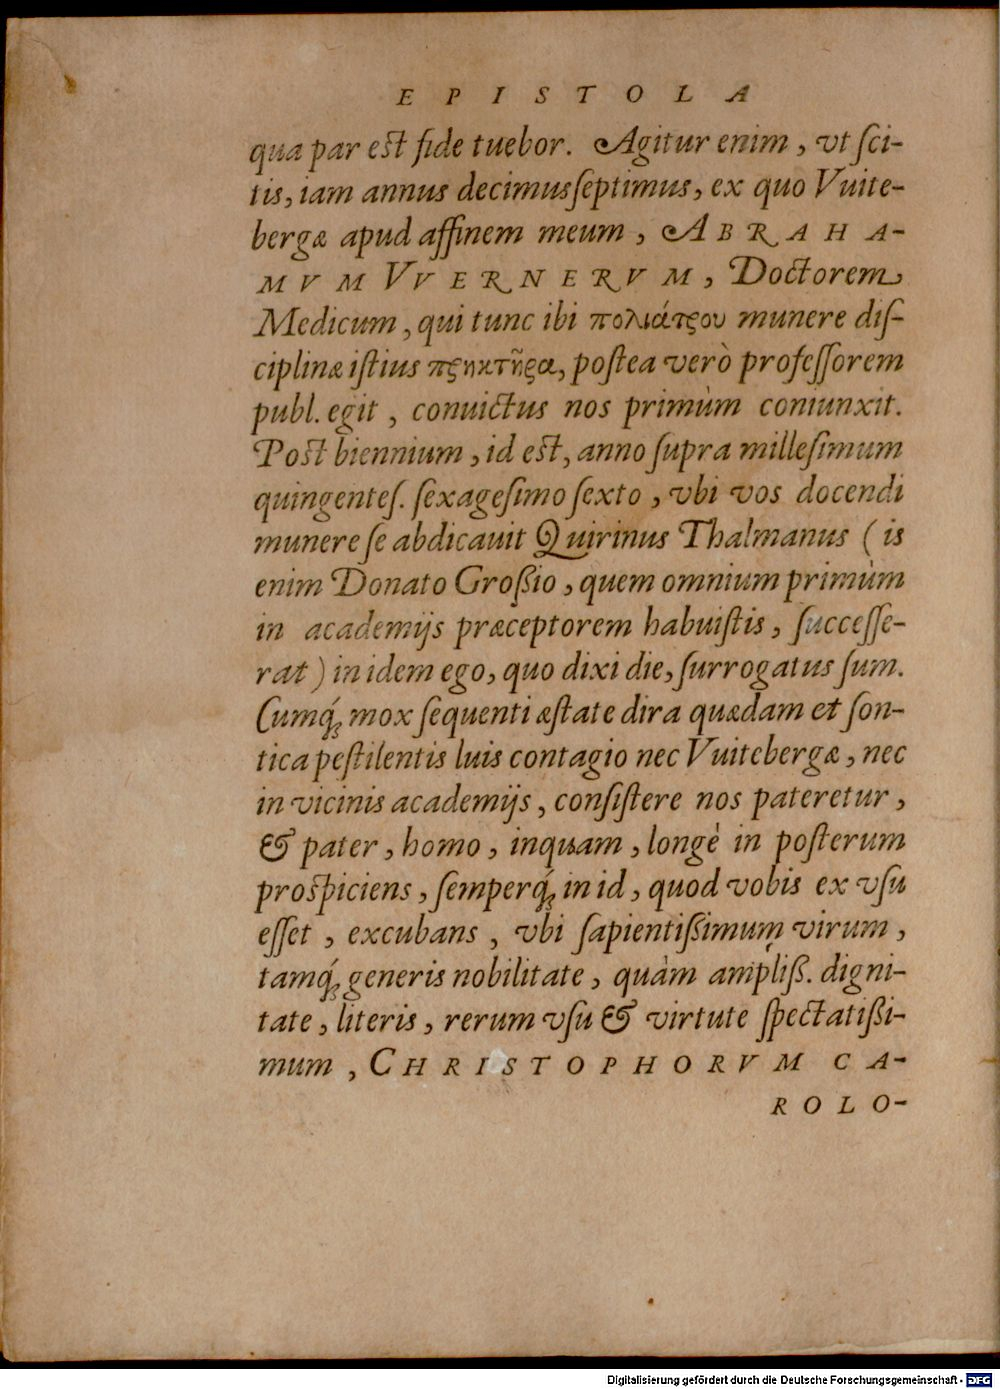 EPISTOLA
qua par est fide tuebor. Agitur enim, vt ſci-
tis, iam annus decimusſeptimus, ex quo Vuite-
bergæ apud affinem meum, ABRAHA-
MVM VVERNERVM, Doctorem
Medicum, qui tunc ibi πολιάτρου munere diſ-
ciplinæ iſtius πρηκτῆρα, poſtea verò profeſſorem
publ. egit, conuictus nos primùm coniunxit.
Poſt biennium, id eſt, anno ſupra milleſimum
quingenteſ. ſexageſimo ſexto, vbi vos docendi
munere ſe abdicauit Quirinus Thalmanus (is
enim Donato Groſsio, quem omnium primùm
in academijs præceptorem habuiſtis, ſucceſſe-
rat) in idem ego, quo dixi die, ſurrogatus ſum.
Cumq́; mox ſequenti æſtate dira quædam et ſon-
tica peſtilentis luis contagio nec Vuitebergæ, nec
in vicinis academijs, conſiſtere nos pateretur,
& pater, homo, inquam, longè in poſterum
proſpiciens, ſemperq́; in id, quod vobis ex vſu
eſſet, excubans, vbi ſapientiſsimum virum,
tamq́; generis nobilitate, quàm ampliſs. digni-
tate, literis, rerum vſu & virtute ſpectatiſsi-
mum, CHRISTOPHORVM CA-
ROLO-
Digitalisierung gefördert durch die Deutsche Forschungsgemeinschaft - DFG